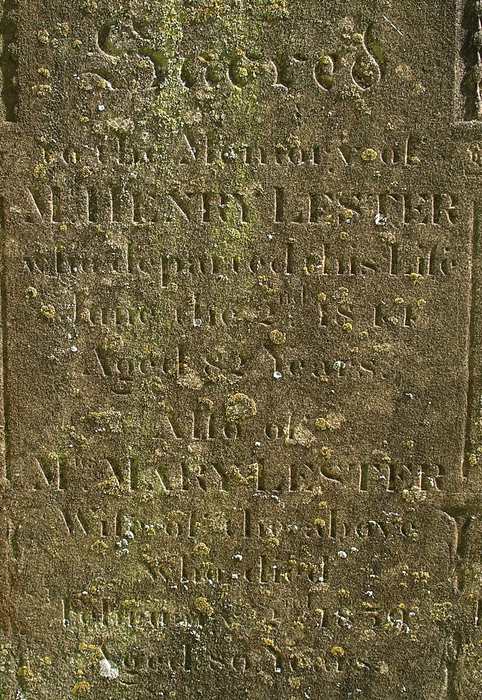 Sacred
to the Memory of
Mr HENRY LESTER
who departed this Life
June the 2nd 18
Aged 82 Years.
Alſo of
Mrs MARY LESTER
Wife of the above
who died
February
Aged 80 Years.